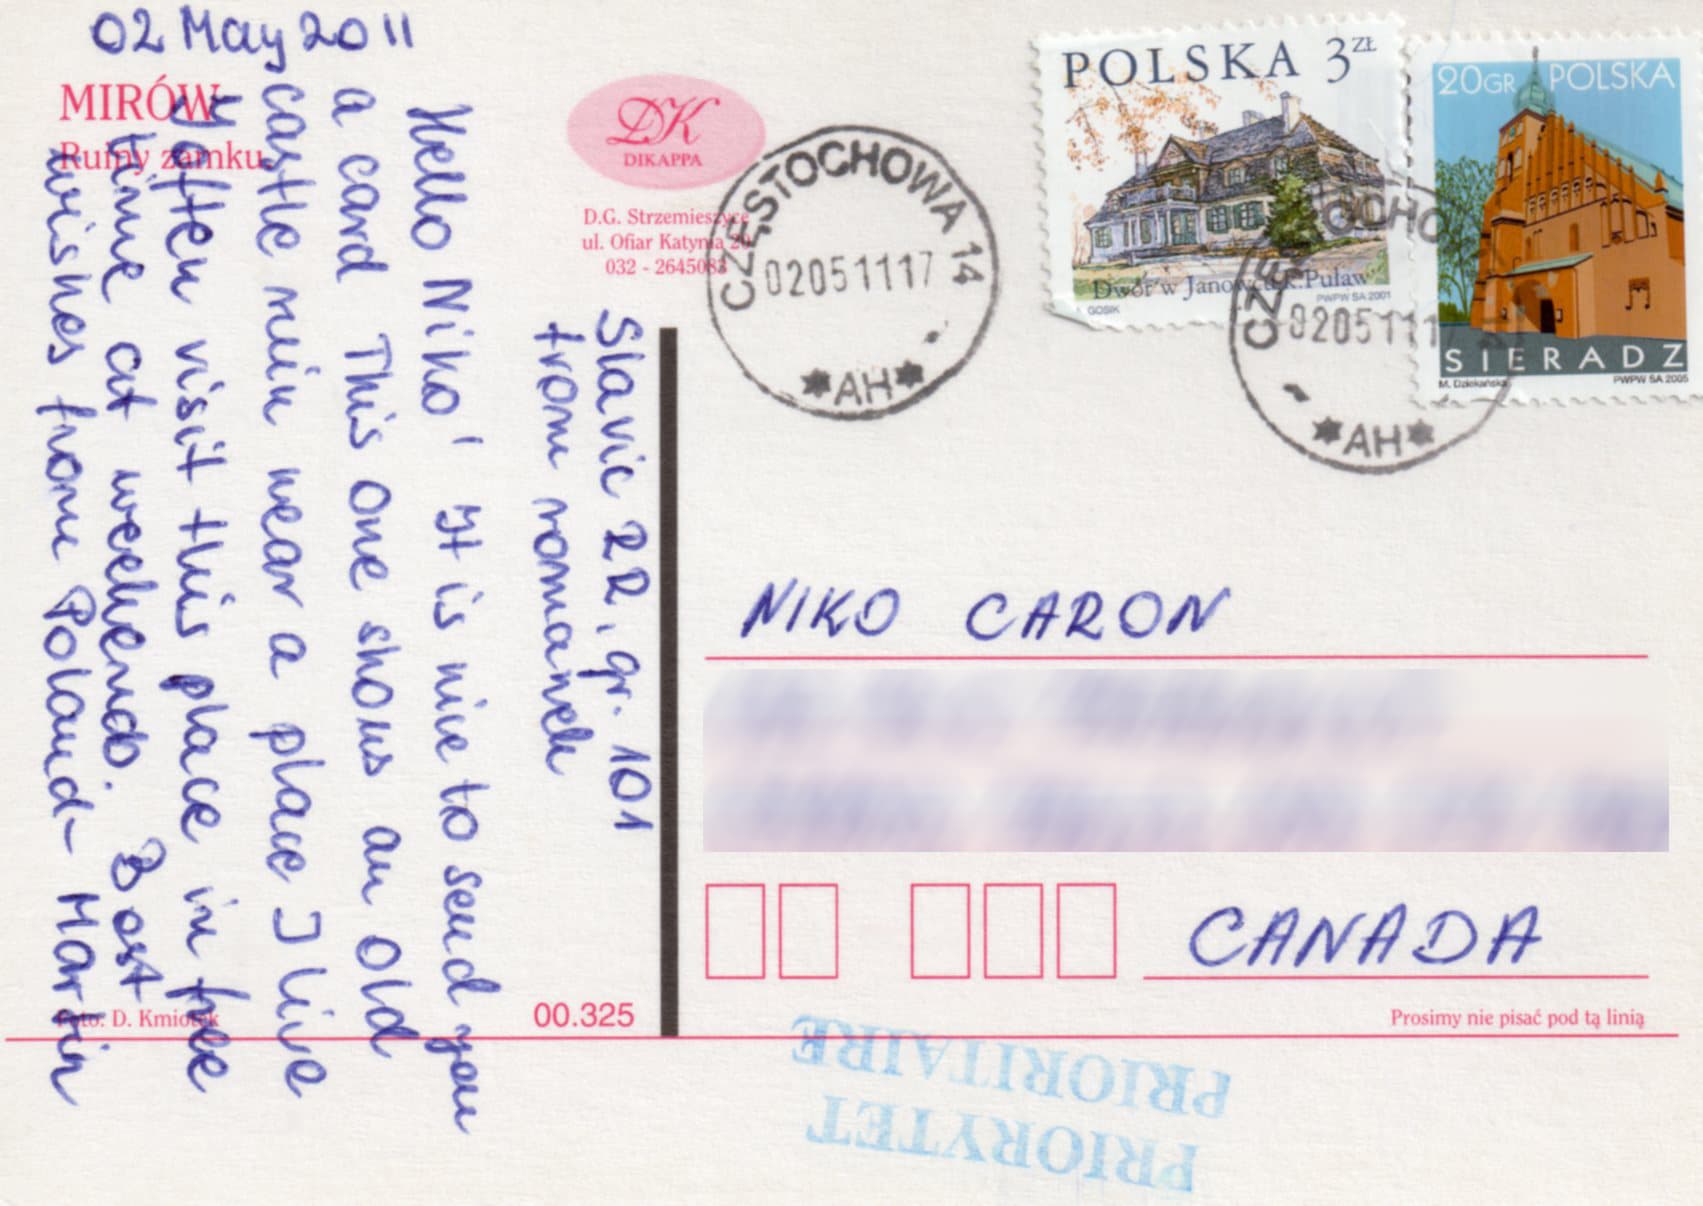 02 May 2011
MIRÓW
Ruiny zamku.
DK
DIKAPPA
D.G. Strzemieszyce
ul. Ofiar Katynia
032 - 2645083
Slavic RR, gr. 101
from romanek
Hello Niko! It is nice to send you
a card This one shows an old
castle ruin near a place I live
I often visit this place in free
time at weekends. Best
wishes from Poland- Marcin
Foto: D. Kmiotek
00.325
CZĘSTOCHOWA 14
020511117
*AH*
POLSKA 3ZŁ
Dwór w Janowcu k.Puław
PWPW SA 2001
GOSIK
20GR POLSKA
SIERADZ
M. Dziekańska
PWPW SA 2005
CZĘ OCHO
0205111
*AH*
NIKO CARON
CANADA
Prosimy nie pisać pod tą linią
PRIORYTET
PRIORITAIRE